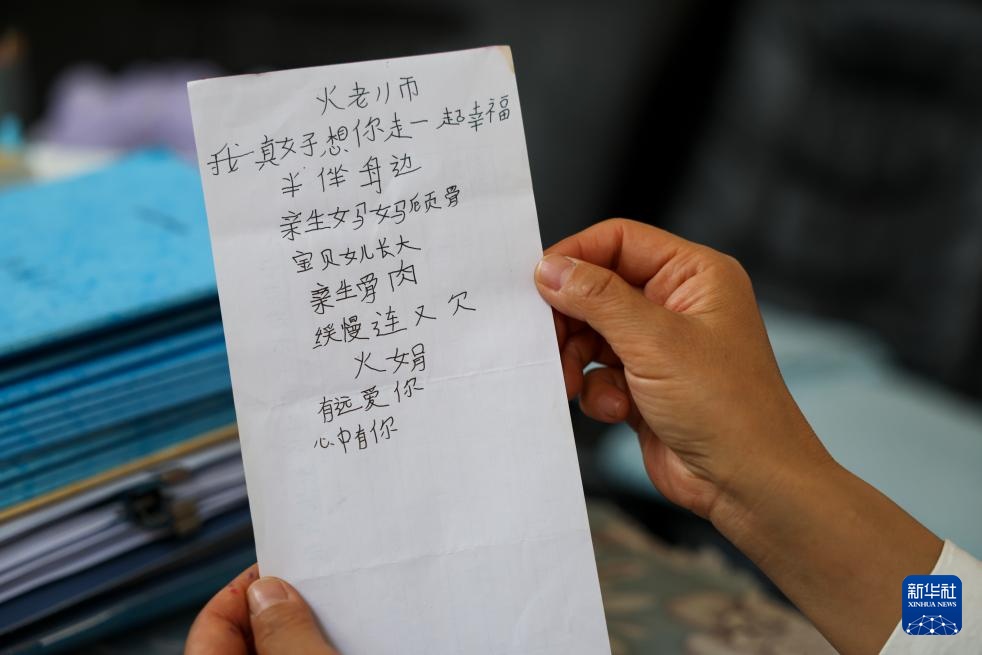 火老师
我真女子想你走一起幸福
半伴身边
亲生女妈妈倾骨
宝贝女儿长大
亲生骨肉
缓慢连又欠
火娟
有远爱你
心中有你
新华社
XINHUA NEWS